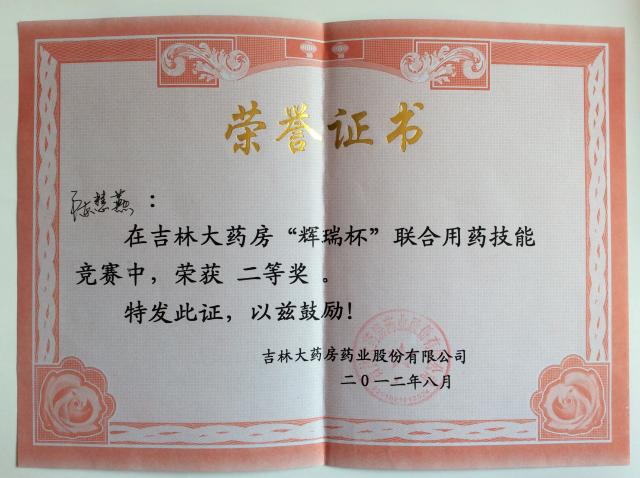 荣誉证书
慧燕：
在吉林大药房“辉瑞杯”联合用药技能
竞赛中，荣获 二等奖 。
特发此证，以兹鼓励！
吉林大药房药业股份有限公司
二〇一二年八月